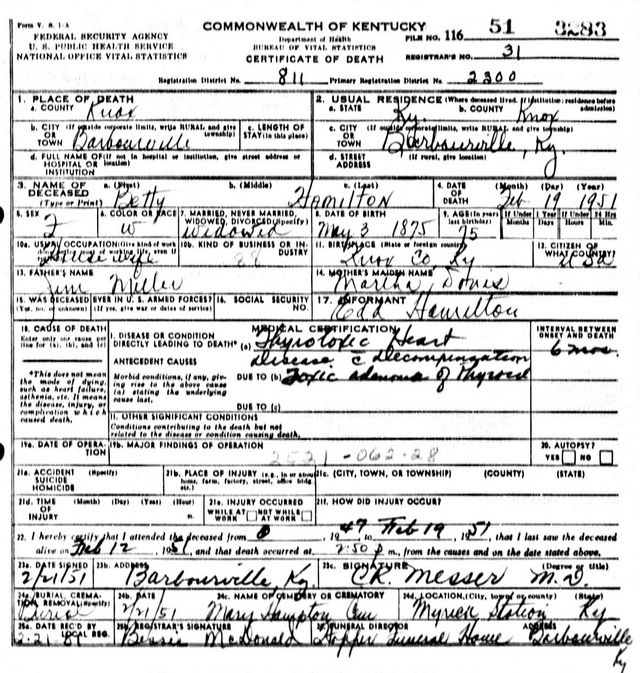 Form V. S. 1-A
FEDERAL SECURITY AGENCY
U. S. PUBLIC HEALTH SERVICE
NATIONAL OFFICE VITAL STATISTICS
COMMONWEALTH OF KENTUCKY
Department of Health
BUREAU OF VITAL STATISTICS
CERTIFICATE OF DEATH
FILE NO. 116 51 3283
REGISTRAR'S NO. 31
Registration District No. 811 Primary Registration District No. 2300
1. PLACE OF DEATH
a. COUNTY Knox
2. USUAL RESIDENCE (Where deceased lived. If institution: residence before admission)
a. STATE Ky. b. COUNTY Knox
b. CITY (If outside corporate limits, write RURAL and give township) OR TOWN Barbourville
c. LENGTH OF STAY (in this place)
c. CITY (If outside corporate limits, write RURAL and give township) OR TOWN Barbourville, Ky.
d. FULL NAME OF (If not in hospital or institution, give street address or location) HOSPITAL OR INSTITUTION
d. STREET ADDRESS (If rural, give location)
3. NAME OF DECEASED (Type or Print) a. (First) Betty b. (Middle) c. (Last) Hamilton
4. DATE OF DEATH (Month) (Day) (Year) Feb 19 1951
5. SEX F
6. COLOR OR RACE W
7. MARRIED, NEVER MARRIED, WIDOWED, DIVORCED (Specify) Widowed
8. DATE OF BIRTH May 3 1875
9. AGE (In years last birthday) 75 If Under 1 Year Months Days If Under 24 Hrs Hours Min.
10a. USUAL OCCUPATION (Give kind of work done during most of working life, even if retired) House wife
10b. KIND OF BUSINESS OR INDUSTRY 88
11. BIRTHPLACE (State or foreign country) Knox Co. Ky
12. CITIZEN OF WHAT COUNTRY? USA
13. FATHER'S NAME Jim Miller
14. MOTHER'S MAIDEN NAME Martha Davis
15. WAS DECEASED EVER IN U. S. ARMED FORCES? (Yes, no, or unknown) (If yes, give war or dates of service)
16. SOCIAL SECURITY NO.
17. INFORMANT Edd Hamilton
18. CAUSE OF DEATH
Enter only one cause per line for (a), (b), and (c)
MEDICAL CERTIFICATION
INTERVAL BETWEEN ONSET AND DEATH
I. DISEASE OR CONDITION DIRECTLY LEADING TO DEATH* (a) Thyrotoxic Heart
Disease c Decompensation 6 mos.
*This does not mean the mode of dying, such as heart failure, asthenia, etc. It means the disease, injury, or complication which caused death.
ANTECEDENT CAUSES
Morbid conditions, if any, giving rise to the above cause (a) stating the underlying cause last.
DUE TO (b) Toxic adenoma of Thyroid
DUE TO (c)
II. OTHER SIGNIFICANT CONDITIONS
Conditions contributing to the death but not related to the disease or condition causing death.
19a. DATE OF OPERATION
19b. MAJOR FINDINGS OF OPERATION
2521-062-28
20. AUTOPSY?
YES NO
21a. ACCIDENT SUICIDE HOMICIDE (Specify)
21b. PLACE OF INJURY (e.g., in or about home, farm, factory, street, office bldg. etc.)
21c. (CITY, TOWN, OR TOWNSHIP) (COUNTY) (STATE)
21d. TIME OF INJURY (Month) (Day) (Year) (Hour) m.
21e. INJURY OCCURRED WHILE AT WORK NOT WHILE AT WORK
21f. HOW DID INJURY OCCUR?
22. I hereby certify that I attended the deceased from , 1947 to Feb 19, 1951, that I last saw the deceased
alive on Feb 12, 1951, and that death occurred at 2:50 p m., from the causes and on the date stated above.
23a. DATE SIGNED 2/21/51
23b. ADDRESS Barbourville, Ky.
23c. SIGNATURE (Degree or title) CR. Messer M.D.
24a. BURIAL, CREMATION, REMOVAL (Specify) Burial
24b. DATE 2/21/51
24c. NAME OF CEMETERY OR CREMATORY Mary Hampton Cem
24d. LOCATION (City, town or county) (State) Myrick Station Ky
25a. DATE REC'D BY LOCAL REG. 2-21-51
25b. REGISTRAR'S SIGNATURE Bessie McDonald
FUNERAL DIRECTOR ADDRESS Hopper Funeral Home Barbourville
Ky